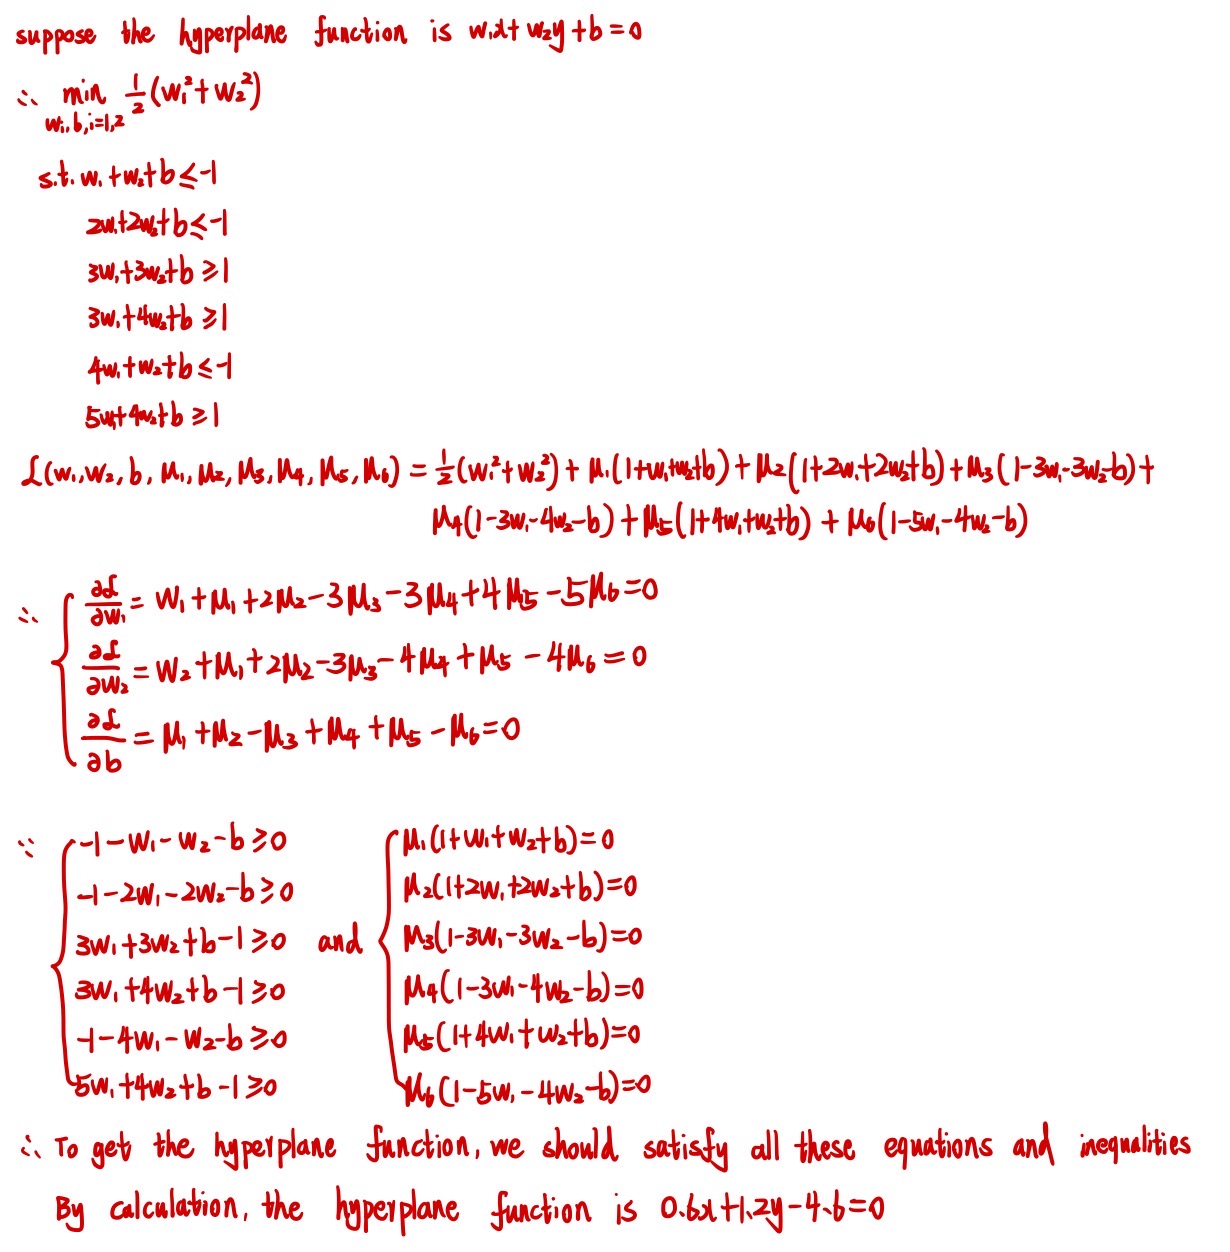 suppose the hyperplane function is w₁x+w₂y+b=0
∴ min ½(w₁²+w₂²)
wᵢ,b,i=1,2
s.t. w₁+w₂+b≤-1
2w₁+2w₂+b≤-1
3w₁+3w₂+b≥1
3w₁+4w₂+b≥1
4w₁+w₂+b≤-1
5w₁+4w₂+b≥1
ℒ(w₁,w₂,b,μ₁,μ₂,μ₃,μ₄,μ₅,μ₆)=½(w₁²+w₂²)+μ₁(1+w₁+w₂+b)+μ₂(1+2w₁+2w₂+b)+μ₃(1-3w₁-3w₂-b)+
μ₄(1-3w₁-4w₂-b)+μ₅(1+4w₁+w₂+b)+μ₆(1-5w₁-4w₂-b)
∴ { ∂ℒ/∂w₁ = w₁+μ₁+2μ₂-3μ₃-3μ₄+4μ₅-5μ₆=0
∂ℒ/∂w₂ = w₂+μ₁+2μ₂-3μ₃-4μ₄+μ₅-4μ₆=0
∂ℒ/∂b = μ₁+μ₂-μ₃+μ₄+μ₅-μ₆=0
∵ { -1-w₁-w₂-b≥0 { μ₁(1+w₁+w₂+b)=0
-1-2w₁-2w₂-b≥0 μ₂(1+2w₁+2w₂+b)=0
3w₁+3w₂+b-1≥0 and μ₃(1-3w₁-3w₂-b)=0
3w₁+4w₂+b-1≥0 μ₄(1-3w₁-4w₂-b)=0
-1-4w₁-w₂-b≥0 μ₅(1+4w₁+w₂+b)=0
5w₁+4w₂+b-1≥0 μ₆(1-5w₁-4w₂-b)=0
∴ To get the hyperplane function, we should satisfy all these equations and inequalities
By calculation, the hyperplane function is 0.6x+1.2y-4.6=0